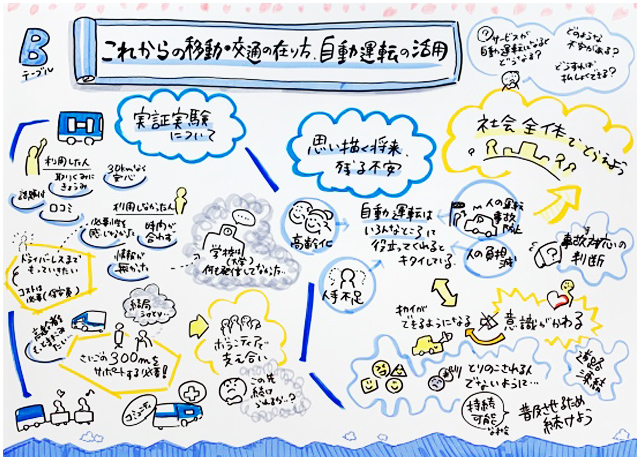 B
テーブル
これからの移動・交通の在り方、自動運転の活用
?サービスが
自動運転になると
どうなる?
どのような
不安がある?
どうすれば
払しょくできる?
実証実験
について
利用した人
取りくみに
きょうみ
30kmなら
安心
口コミ
利用しなかった人
必要性を
感じなかった
時間が
合わず
情報が
無かった
学校側
(大学)
何も発信してなかった…
ドライバーレスまで
もっていきたい
コストは
必要(保安員)
さいごの300mを
サポートする必要!
ボランティアで
支え合い
この先
続け
られるか…?
コミュニティ
思い描く将来、
残る不安
高齢化
人手不足
自動運転は
いろんなところに
役立ってくれると
キタイしている
人の運転
事故
防止
人の負担
減
社会全体でどうえよう
事故対応の
判断
意識がかわる
できるようになる
とりのこされる人
でないように…
持続
可能な社会
普及させるため
続けよう